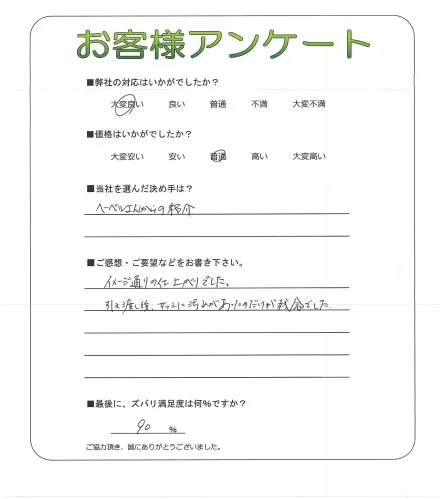 お客様アンケート
■弊社の対応はいかがでしたか？
大変良い 良い 普通 不満 大変不満
■価格はいかがでしたか？
大変安い 安い 普通 高い 大変高い
■当社を選んだ決め手は？
ヘーベルさんからの紹介
■ご感想・ご要望などをお書き下さい。
イメージ通りの仕上がりでした。
引き渡し後、すぐに汚れがあったのだけが残念でした。
■最後に、ズバリ満足度は何％ですか？
90 ％
ご協力頂き、誠にありがとうございました。